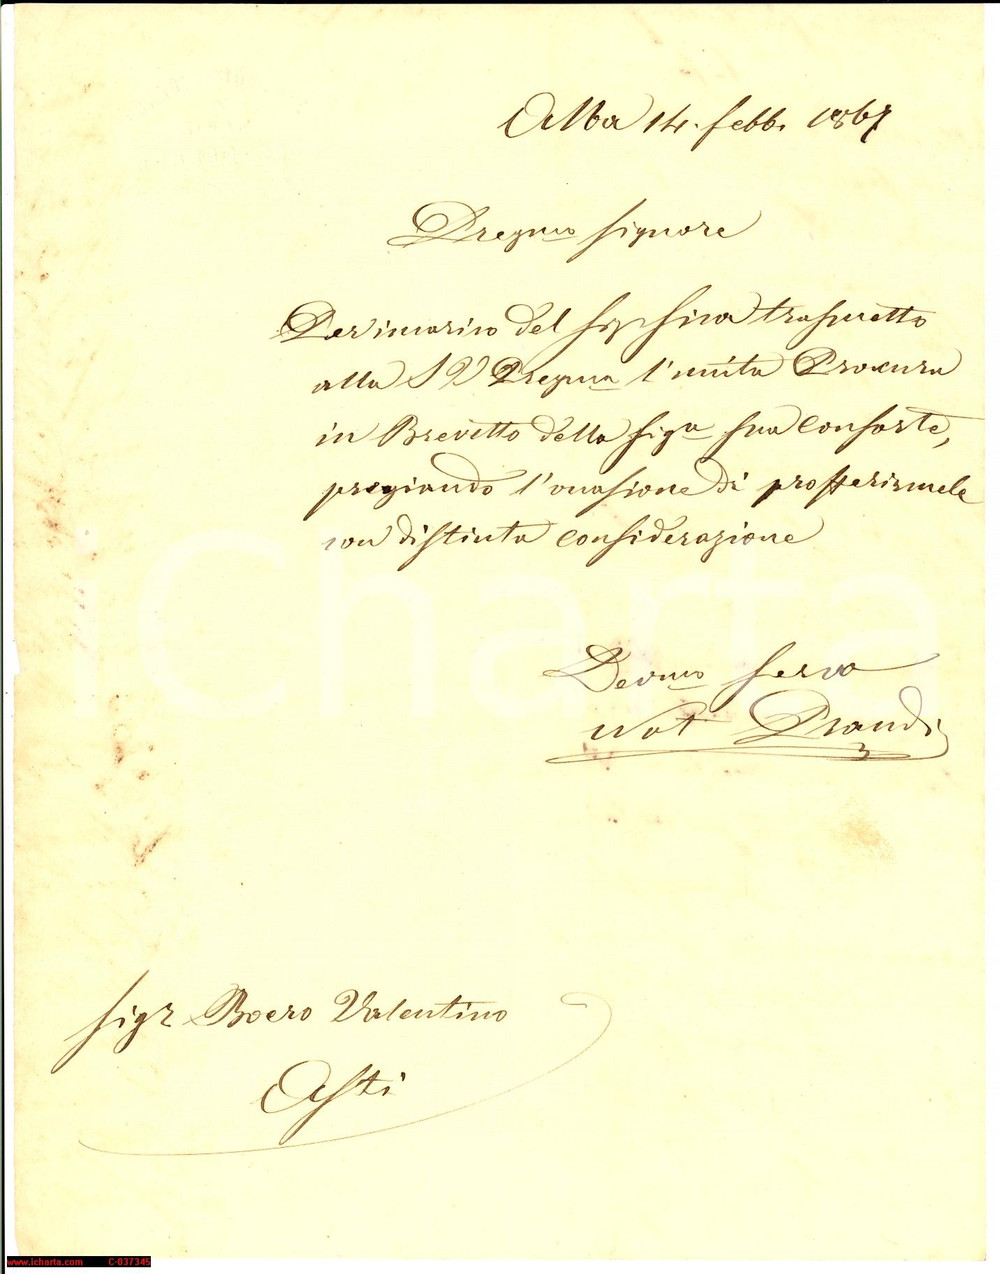 Alba 14. febb. 1867
Pregmo Signore
Per incarico del Sigr Sina trasmetto
alla S V Pregma l'unita Procura
in Brevetto della Siga sua Consorte,
pregiando l'occasione di profferirmele
con distinta considerazione
Devmo servo
Not Prandi
Sigr Boero Valentino
Asti
iCharta
www.icharta.com C-037345